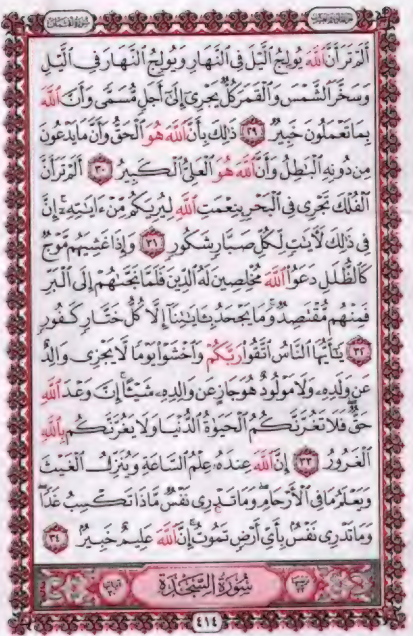 أَلَمْ تَرَ أَنَّ اللَّهَ يُولِجُ الَّيْلَ فِي النَّهَارِ وَيُولِجُ النَّهَارَ فِي الَّيْلِ
وَسَخَّرَ الشَّمْسَ وَالْقَمَرَ كُلٌّ يَجْرِي إِلَىٰ أَجَلٍ مُّسَمًّى وَأَنَّ اللَّهَ
بِمَا تَعْمَلُونَ خَبِيرٌ ٢٩ ذَٰلِكَ بِأَنَّ اللَّهَ هُوَ الْحَقُّ وَأَنَّ مَا يَدْعُونَ
مِن دُونِهِ الْبَاطِلُ وَأَنَّ اللَّهَ هُوَ الْعَلِيُّ الْكَبِيرُ ٣٠ أَلَمْ تَرَ أَنَّ
الْفُلْكَ تَجْرِي فِي الْبَحْرِ بِنِعْمَتِ اللَّهِ لِيُرِيَكُم مِّنْ ءَايَاتِهِ إِنَّ
فِي ذَٰلِكَ لَءَايَاتٍ لِّكُلِّ صَبَّارٍ شَكُورٍ ٣١ وَإِذَا غَشِيَهُم مَّوْجٌ
كَالظُّلَلِ دَعَوُا اللَّهَ مُخْلِصِينَ لَهُ الدِّينَ فَلَمَّا نَجَّاهُمْ إِلَى الْبَرِّ
فَمِنْهُم مُّقْتَصِدٌ وَمَا يَجْحَدُ بِـَٔايَاتِنَا إِلَّا كُلُّ خَتَّارٍ كَفُورٍ
٣٢ يَـٰٓأَيُّهَا النَّاسُ اتَّقُوا رَبَّكُمْ وَاخْشَوْا يَوْمًا لَّا يَجْزِي وَالِدٌ
عَن وَلَدِهِ وَلَا مَوْلُودٌ هُوَ جَازٍ عَن وَالِدِهِ شَيْـًٔا إِنَّ وَعْدَ اللَّهِ
حَقٌّ فَلَا تَغُرَّنَّكُمُ الْحَيَوٰةُ الدُّنْيَا وَلَا يَغُرَّنَّكُم بِاللَّهِ
الْغَرُورُ ٣٣ إِنَّ اللَّهَ عِندَهُ عِلْمُ السَّاعَةِ وَيُنَزِّلُ الْغَيْثَ
وَيَعْلَمُ مَا فِي الْأَرْحَامِ وَمَا تَدْرِي نَفْسٌ مَّاذَا تَكْسِبُ غَدًا
وَمَا تَدْرِي نَفْسٌ بِأَيِّ أَرْضٍ تَمُوتُ إِنَّ اللَّهَ عَلِيمٌ خَبِيرٌ ٣٤
سُورَةُ السَّجْدَةِ
٤١٤